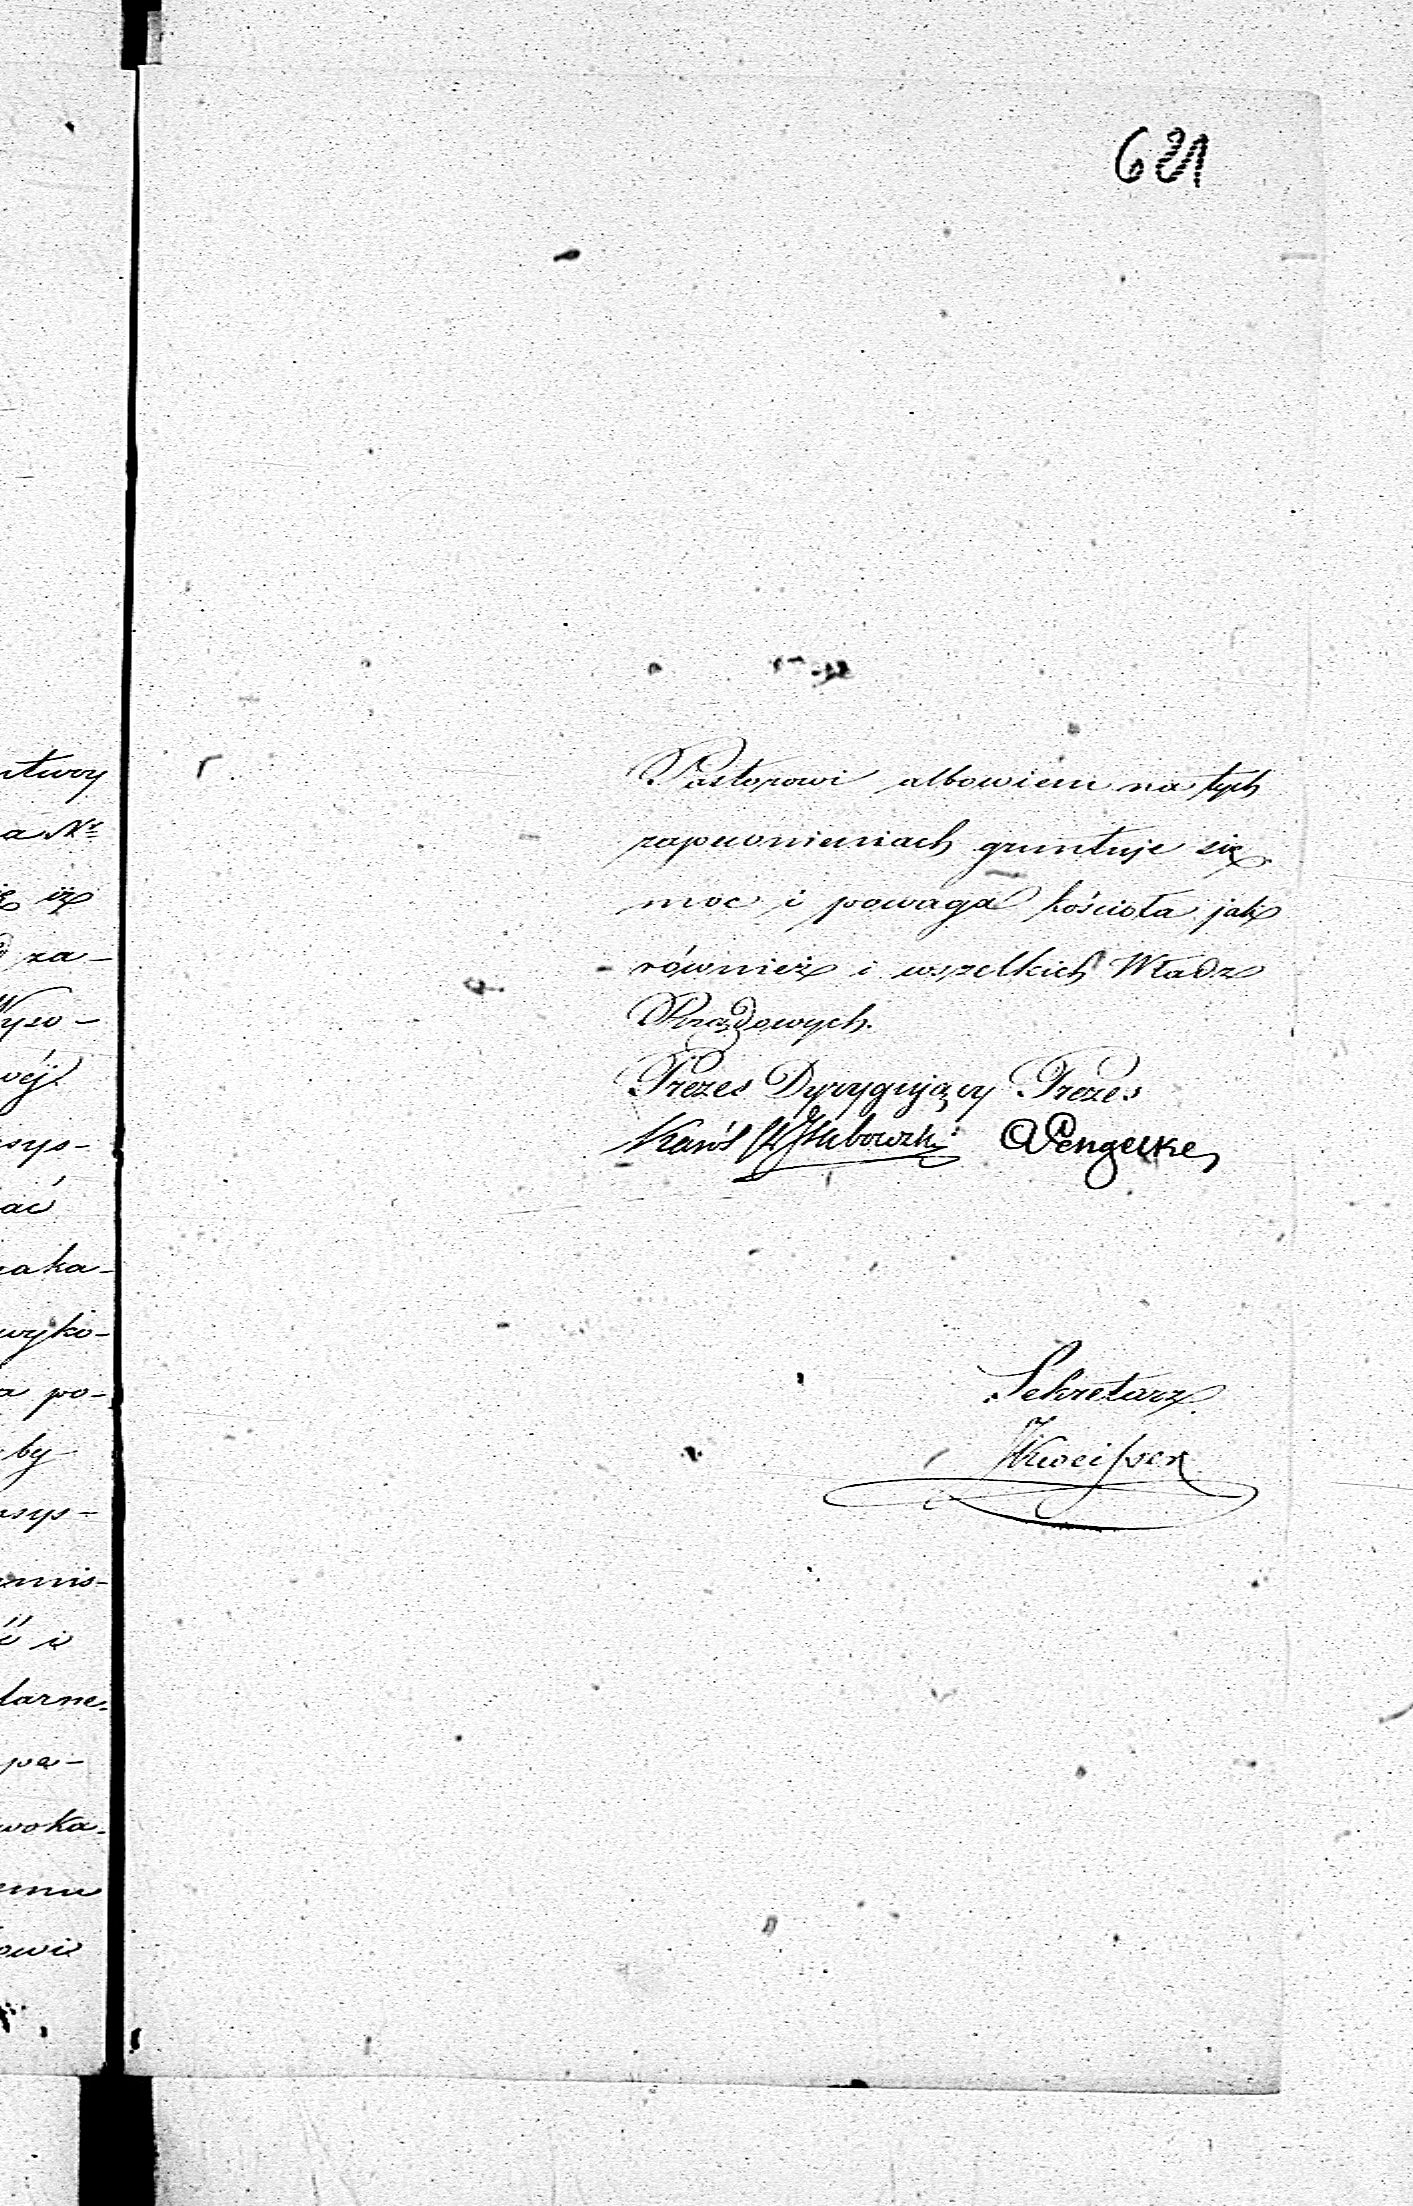 621
Pastorowi albowiem na tych
zapewnieniach gruntuje się
moc i powaga kościoła jak
również i wszelkich Władz
Rządowych.
Prezes Dyrygujący Prezes
Karól
Sekretarz
ntwoy
a Nr
ię iż
za-
Wyso-
wéj
nsys-
ać
zaka-
wyko-
a po-
by
nsys-
mmis-
ić i
larne.
pa-
woka-
emu
owi